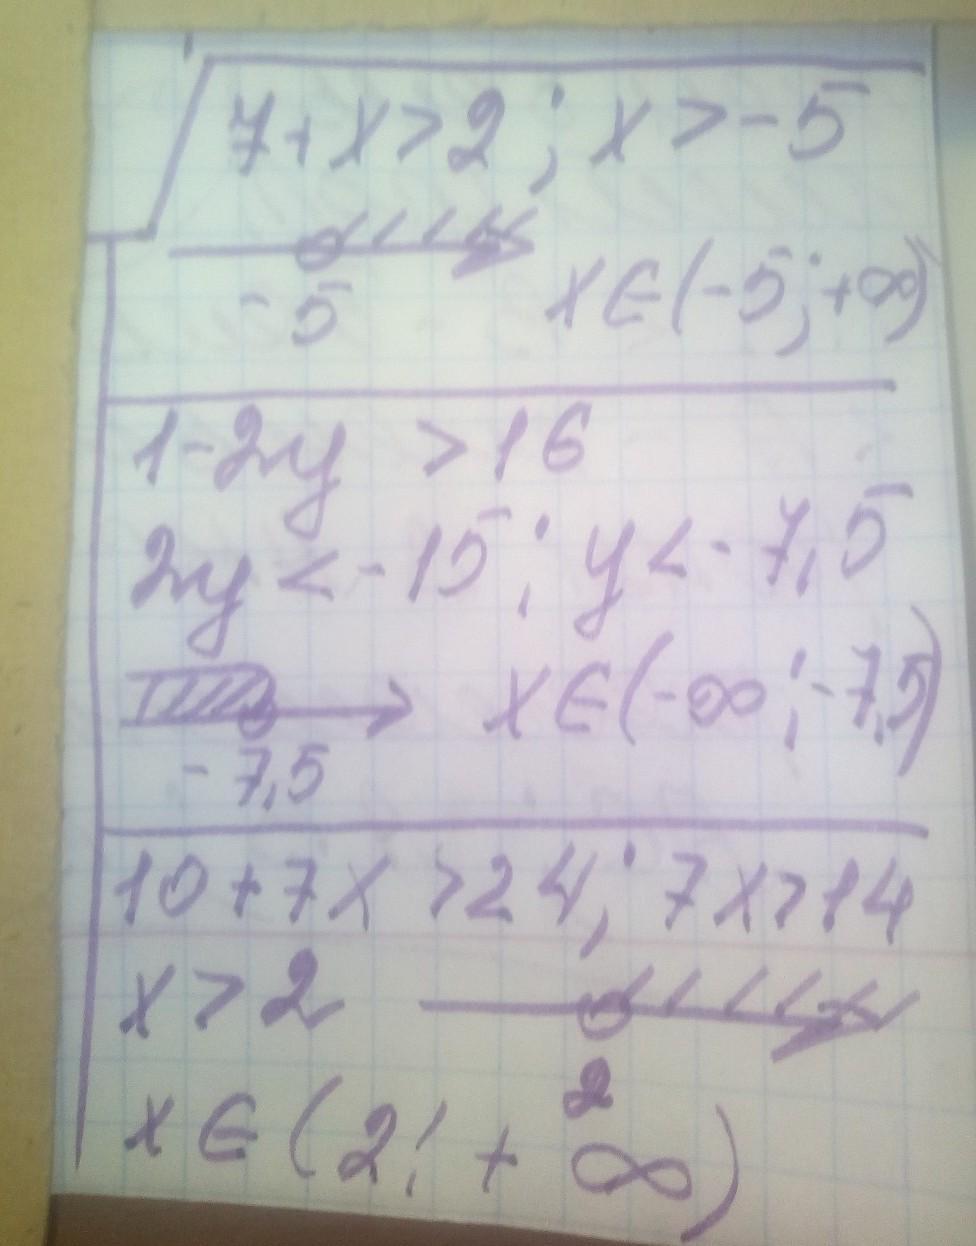 7+x>2; x>-5
-5 x∈(-5;+∞)
1-2y >16
2y<-15; y<-7,5
-7,5 x∈(-∞;-7,5)
10+7x>24; 7x>14
x>2
2
x∈(2;+∞)